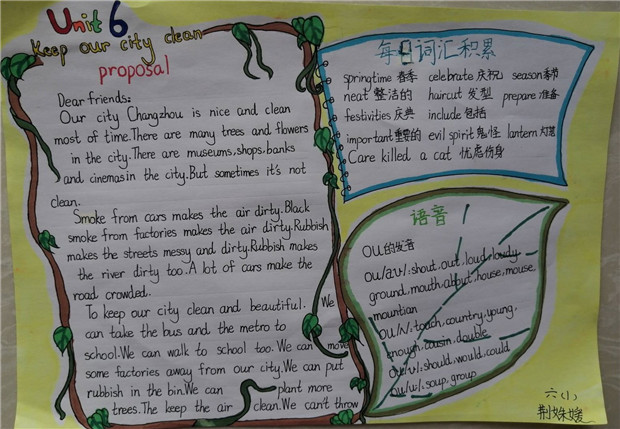 Unit 6
Keep our city clean
proposal
Dear friends:
Our city Changzhou is nice and clean
most of time.There are many trees and flowers
in the city.There are museums,shops,banks
and cinemas in the city.But sometimes it's not
clean.
Smoke from cars makes the air dirty.Black
smoke from factories makes the air dirty.Rubbish
makes the streets messy and dirty.Rubbish makes
the river dirty too.A lot of cars make the
road crowded.
To keep our city clean and beautiful. We
can take the bus and the metro to
school.We can walk to school too. We can move
some factories away from our city.We can put
rubbish in the bin.We can plant more
trees.The keep the air clean.We can't throw
每日词汇积累
springtime 春季 celebrate 庆祝 season 季节
neat 整洁的 haircut 发型 prepare 准备
festivities 庆典 include 包括
important 重要的 evil spirit 鬼怪 lantern 灯笼
Care killed a cat 忧虑伤身
语音
ou的发音
ou/aʊ/:shout,out,loud,loudly
ground,mouth,about,house,mouse,
mountian
ou/ʌ/:touch,country,young,
enough,cousin,double
ou/ʊ/:should,would,could
ou/u:/:soup,group
六(1)